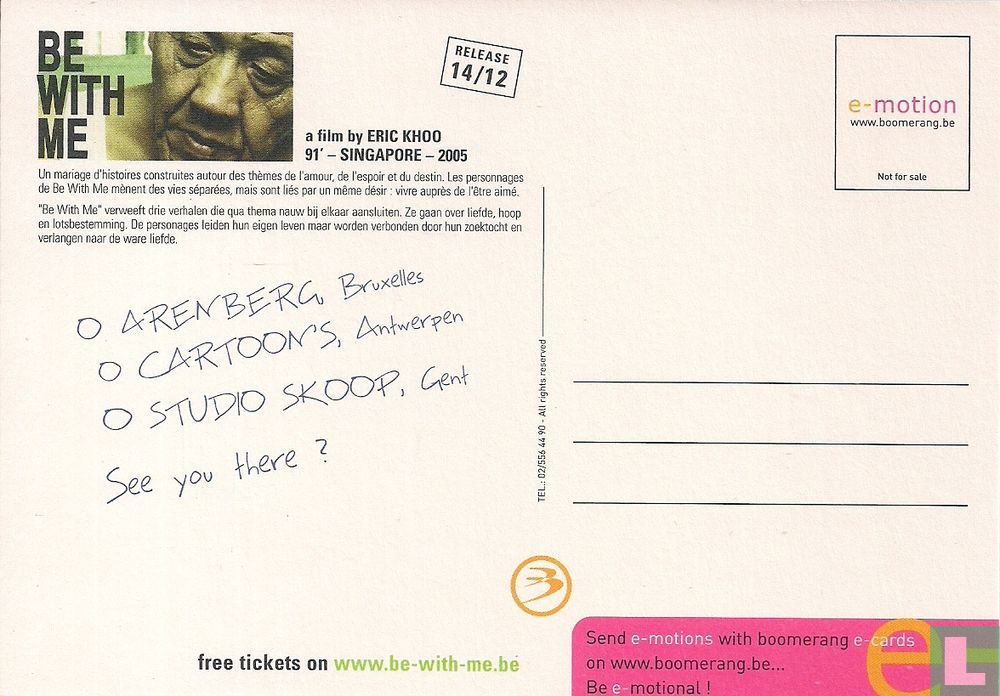 BE
WITH
ME
RELEASE
14/12
a film by ERIC KHOO
91' – SINGAPORE – 2005
Un mariage d'histoires construites autour des thèmes de l'amour, de l'espoir et du destin. Les personnages
de Be With Me mènent des vies séparées, mais sont liés par un même désir : vivre auprès de l'être aimé.
"Be With Me" verweeft drie verhalen die qua thema nauw bij elkaar aansluiten. Ze gaan over liefde, hoop
en lotsbestemming. De personages leiden hun eigen leven maar worden verbonden door hun zoektocht en
verlangen naar de ware liefde.
O ARENBERG, Bruxelles
O CARTOON'S, Antwerpen
O STUDIO SKOOP, Gent
See you there ?
free tickets on www.be-with-me.be
TEL.: 02/556 44 90 - All rights reserved
e-motion
www.boomerang.be
Not for sale
Send e-motions with boomerang e-cards
on www.boomerang.be...
Be e-motional !
eL